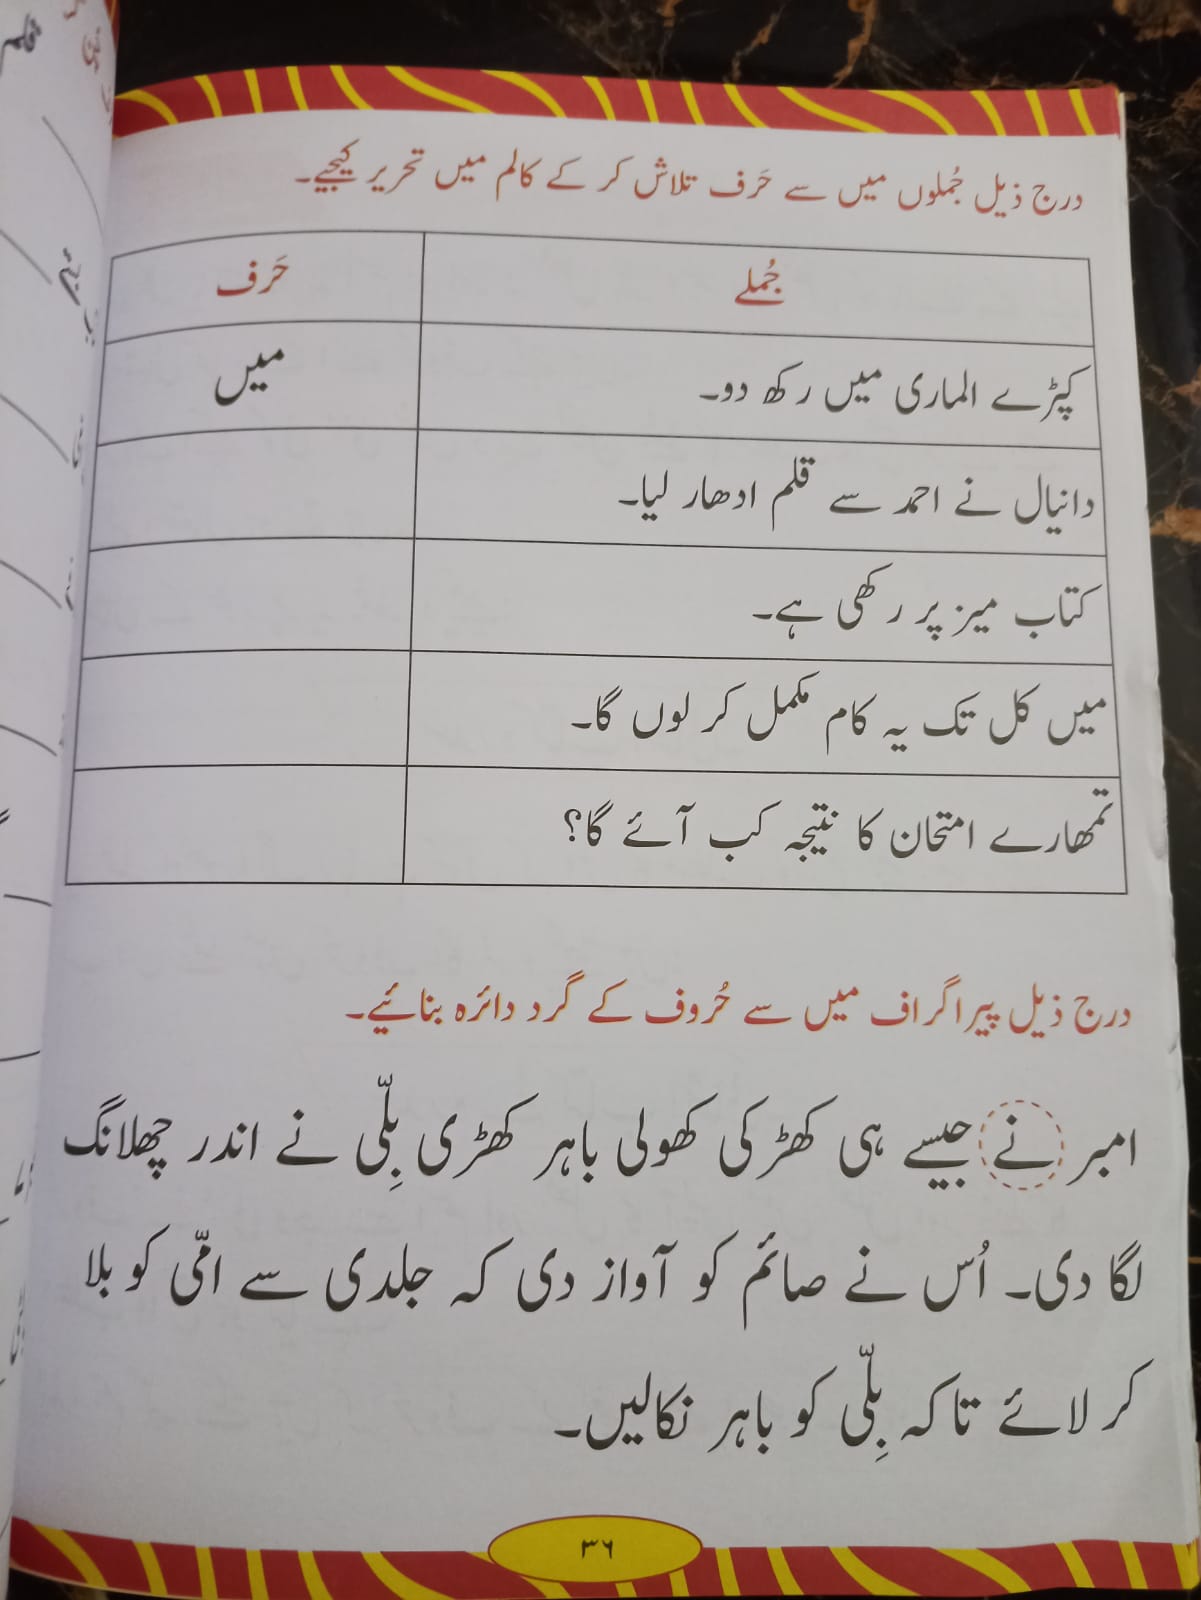 درج ذیل جُملوں میں سے حَرف تلاش کر کے کالم میں تحریر کیجیے۔
جُملے حَرف
کپڑے الماری میں رکھ دو۔ میں
دانیال نے احمد سے قلم ادھار لیا۔
کتاب میز پر رکھی ہے۔
میں کل تک یہ کام مکمل کر لوں گا۔
تمھارے امتحان کا نتیجہ کب آئے گا؟
درج ذیل پیراگراف میں سے حُروف کے گرد دائرہ بنائیے۔
امبر نے جیسے ہی کھڑکی کھولی باہر کھڑی بِلّی نے اندر چھلانگ
لگا دی۔ اُس نے صائم کو آواز دی کہ جلدی سے امّی کو بلا
کر لائے تاکہ بِلّی کو باہر نکالیں۔
۳۶